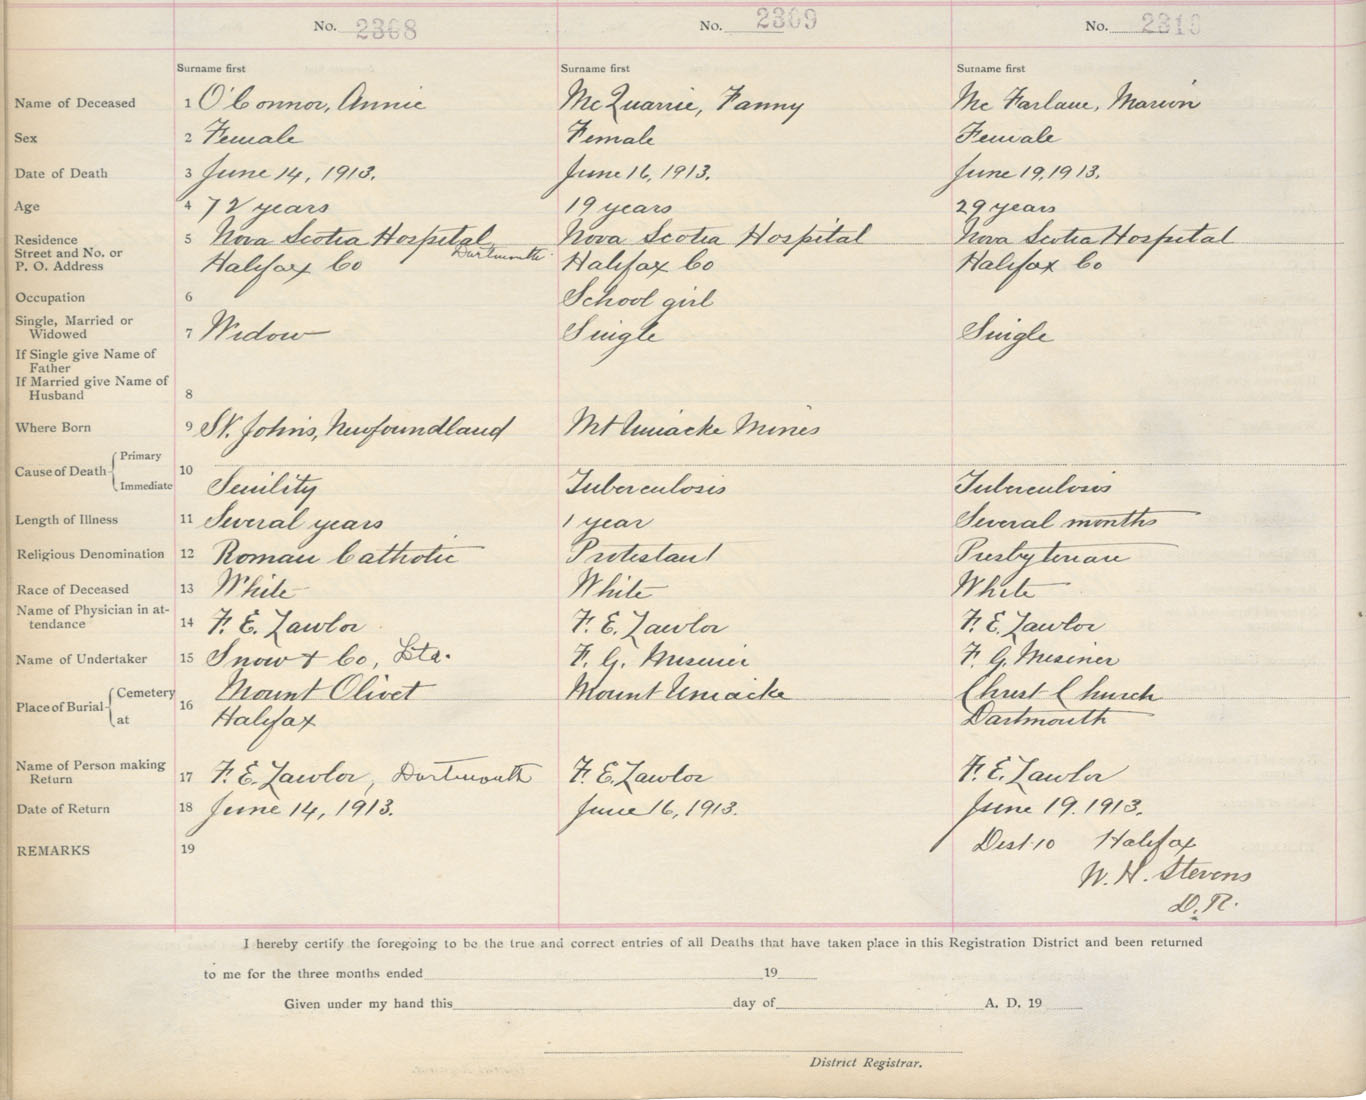 No. 2308 No. 2309 No. 2310
Surname first Surname first Surname first
Name of Deceased 1 O'Connor, Annie McQuarrie, Fanny McFarlane, Marion
Sex 2 Female Female Female
Date of Death 3 June 14, 1913. June 16, 1913. June 19, 1913.
Age 4 72 years 19 years 29 years
Residence 5 Nova Scotia Hospital Nova Scotia Hospital Nova Scotia Hospital
Street and No. or Dartmouth
P. O. Address Halifax Co Halifax Co Halifax Co
Occupation 6 School girl
Single, Married or
Widowed 7 Widow Single Single
If Single give Name of
Father
If Married give Name of
Husband 8
Where Born 9 St. Johns, Newfoundland Mt Uniacke Mines
Cause of Death Primary 10
Immediate Senility Tuberculosis Tuberculosis
Length of Illness 11 Several years 1 year Several months
Religious Denomination 12 Roman Catholic Protestant Presbyterian
Race of Deceased 13 White White White
Name of Physician in at-
tendance 14 F. E. Lawlor F. E. Lawlor F. E. Lawlor
Name of Undertaker 15 Snow & Co, Ltd. F. G. Misener F. G. Misener
Place of Burial Cemetery 16 Mount Olivet Mount Uniacke Christ Church
at Halifax Dartmouth
Name of Person making
Return 17 F. E. Lawlor, Dartmouth F. E. Lawlor F. E. Lawlor
Date of Return 18 June 14, 1913. June 16, 1913. June 19. 1913.
REMARKS 19 Dist. 10 Halifax
W. H. Stevens
D. R.
I hereby certify the foregoing to be the true and correct entries of all Deaths that have taken place in this Registration District and been returned
to me for the three months ended 19
Given under my hand this day of A. D. 19
District Registrar.